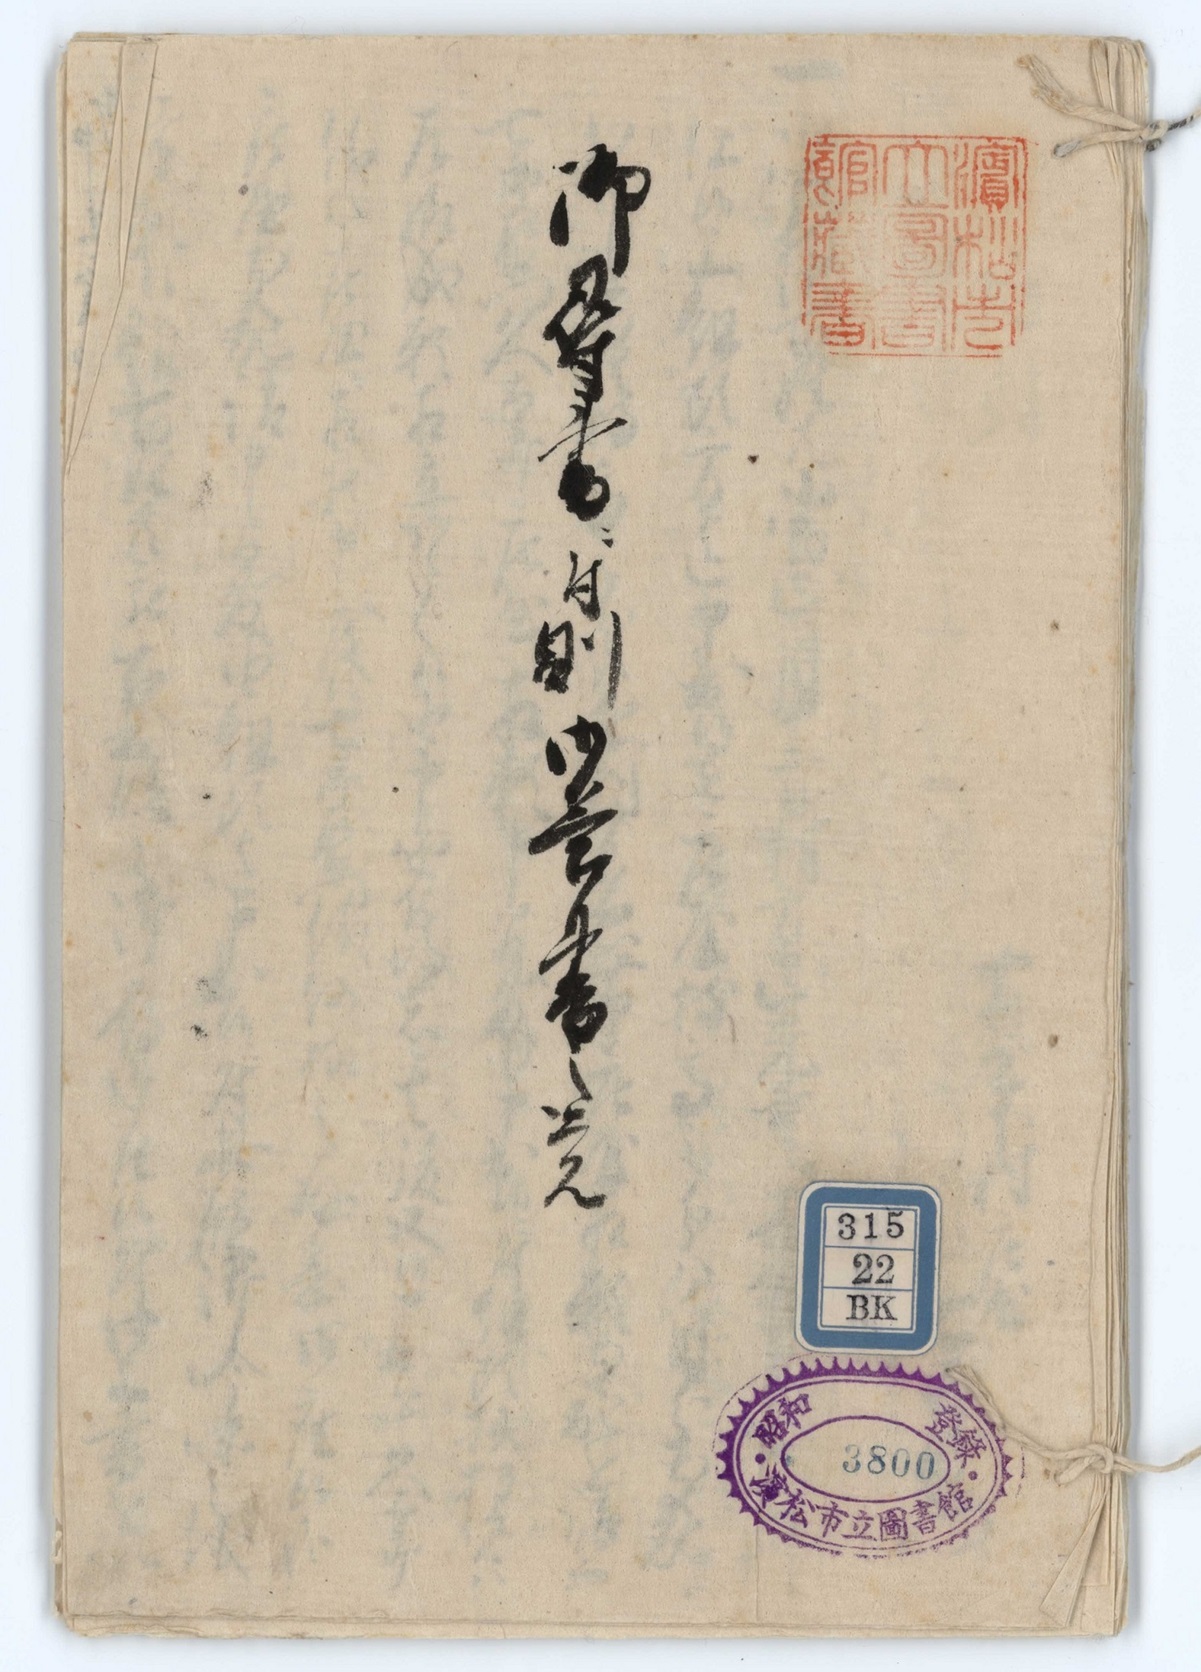 濵松市
立圖書
館藏書
御尋書付則御答書之覚
315
22
BK
昭和 登錄
3800
濱松市立圖書館